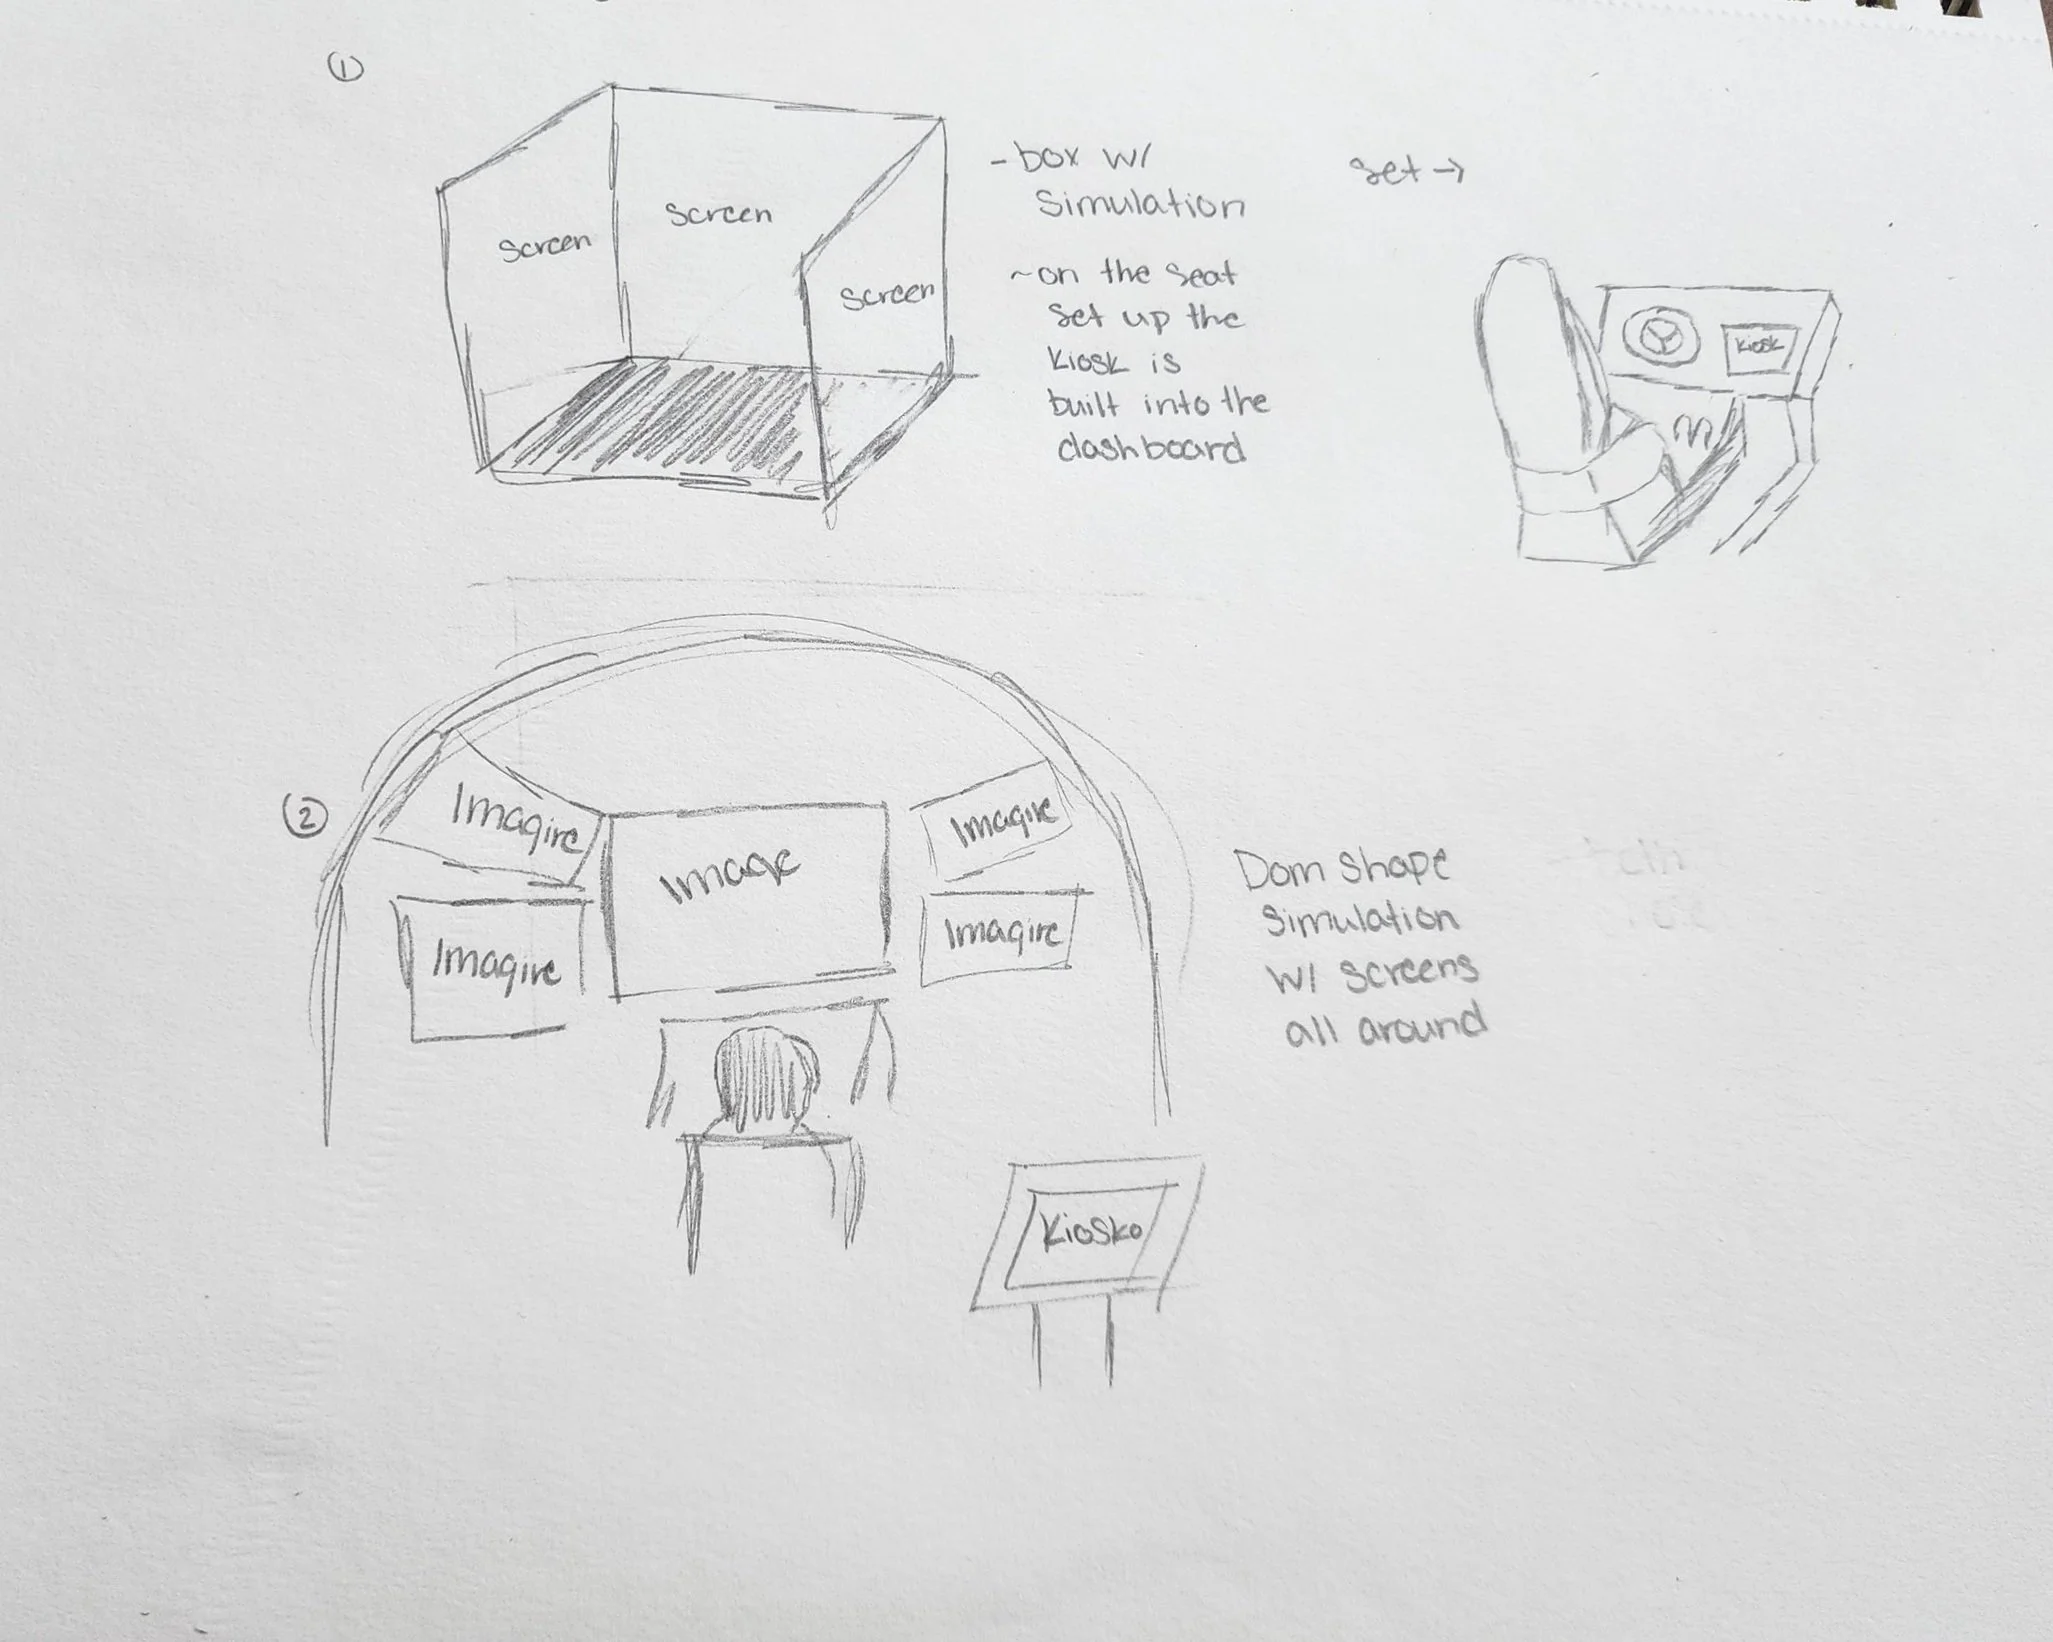 ①
Screen
Screen
Screen
- box w/
Simulation
~ on the seat
set up the
Kiosk is
built into the
dashboard
set →
Kiosk
②
Imagine
Image
Imagine
Imagine
Imagine
Dom shape
Simulation
w/ screens
all around
Kiosko